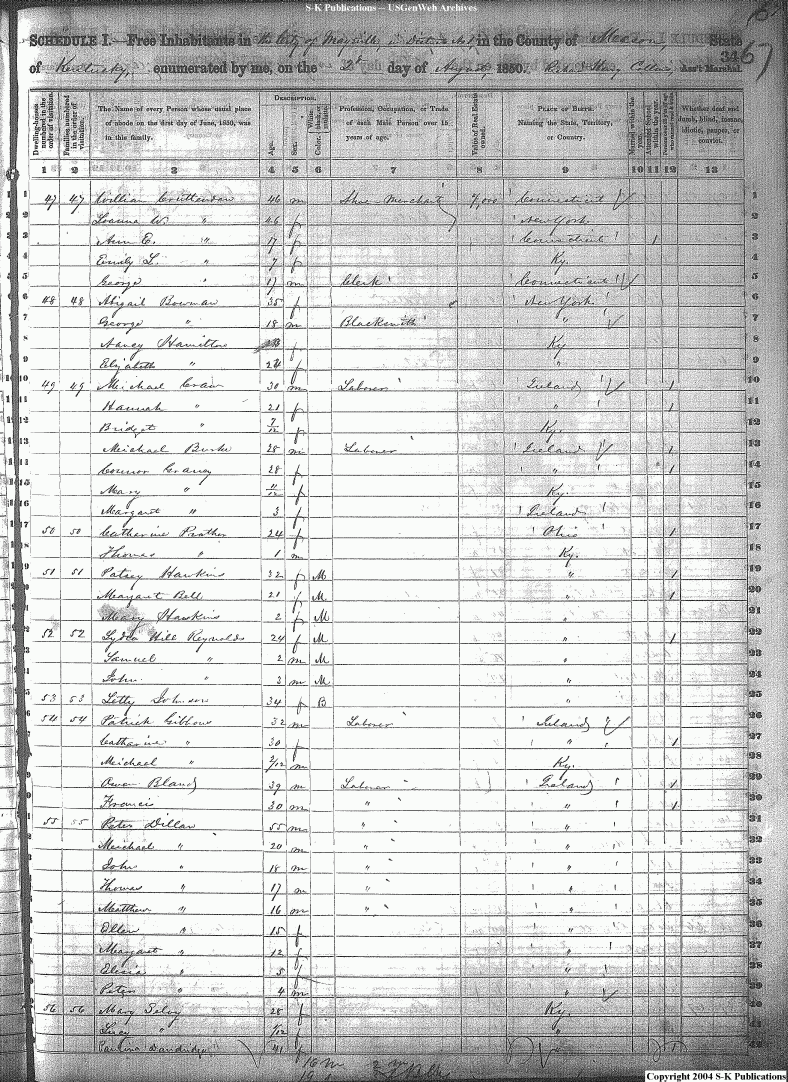 S-K Publications – USGenWeb Archives
SCHEDULE I. Free Inhabitants in the City of Maysville in District No 1, in the County of Mason, State
of Kentucky, enumerated by me, on the 2d day of August, 1850. Collins, Ass't Marshal.
34
67
Dwelling-houses numbered in the order of visitation.
Families numbered in the order of visitation.
The Name of every Person whose usual place of abode on the first day of June, 1850, was in this family.
Description.
Age.
Sex.
Color.
Profession, Occupation, or Trade of each Male Person over 15 years of age.
Value of Real Estate owned.
Place of Birth. Naming the State, Territory, or Country.
Married within the year.
Attended School within the year.
Whether deaf and dumb, blind, insane, idiotic, pauper, or convict.
1 2 3 4 5 6 7 8 9 10 11 12 13
1 47 47 William Crittenden 46 m Shoe Merchant 7,000 Connecticut 1
2 Joanna W. " 46 f New York 2
3 Ann E. " 17 f Connecticut 1 3
4 Emily L. " 7 f Ky. 4
5 George " 17 m Clerk Connecticut 5
6 48 48 Abigail Bowman 35 f New York 6
7 George " 18 m Blacksmith " 7
8 Nancy Hamilton f Ky 8
9 Elizabeth " 24 f " 9
10 49 49 Michael 30 m Laborer Ireland 1 10
11 Hannah " 21 f " 1 11
12 Bridget " 7/12 f Ky. 12
13 Michael Burke 28 m Laborer Ireland 1 13
14 28 f " 1 14
15 Mary " 11/12 f Ky. 15
16 Margaret " 3 f Ireland 16
17 50 50 Catharine Prather 24 f Ohio 1 17
18 Thomas " 1 m Ky. 18
19 51 51 Patsey Hawkins 32 f M " 1 19
20 Margaret Bell 21 f M " 1 20
21 Mary Hawkins 2 f M " 21
22 52 52 Lydia Hill Reynolds 24 f M " 1 22
23 Samuel " 2 m M " 23
24 John " 3 m M " 24
25 53 53 Letty Johnson 34 f B " 25
26 54 54 Patrick Gibbons 32 m Laborer Ireland 26
27 Catharine " 30 f " 1 27
28 Michael " 2/12 m Ky. 28
29 Owen Bland 39 m Laborer Ireland 1 29
30 Francis 30 m " " 1 30
31 55 55 Peter Dillan 55 m " " 31
32 Michael " 20 m " " 32
33 John " 18 m " " 33
34 Thomas " 17 m " " 34
35 Matthew " 16 m " " 35
36 Ellen " 15 f " 36
37 Margaret " 12 f " 37
38 " 5 f " 38
39 Peter " 4 m " 39
40 56 56 Mary 28 f Ky. 40
41 Lucy " f " 41
42 Dandridge 41 f 42
16 m 2 m
Copyright 2004 S-K Publications